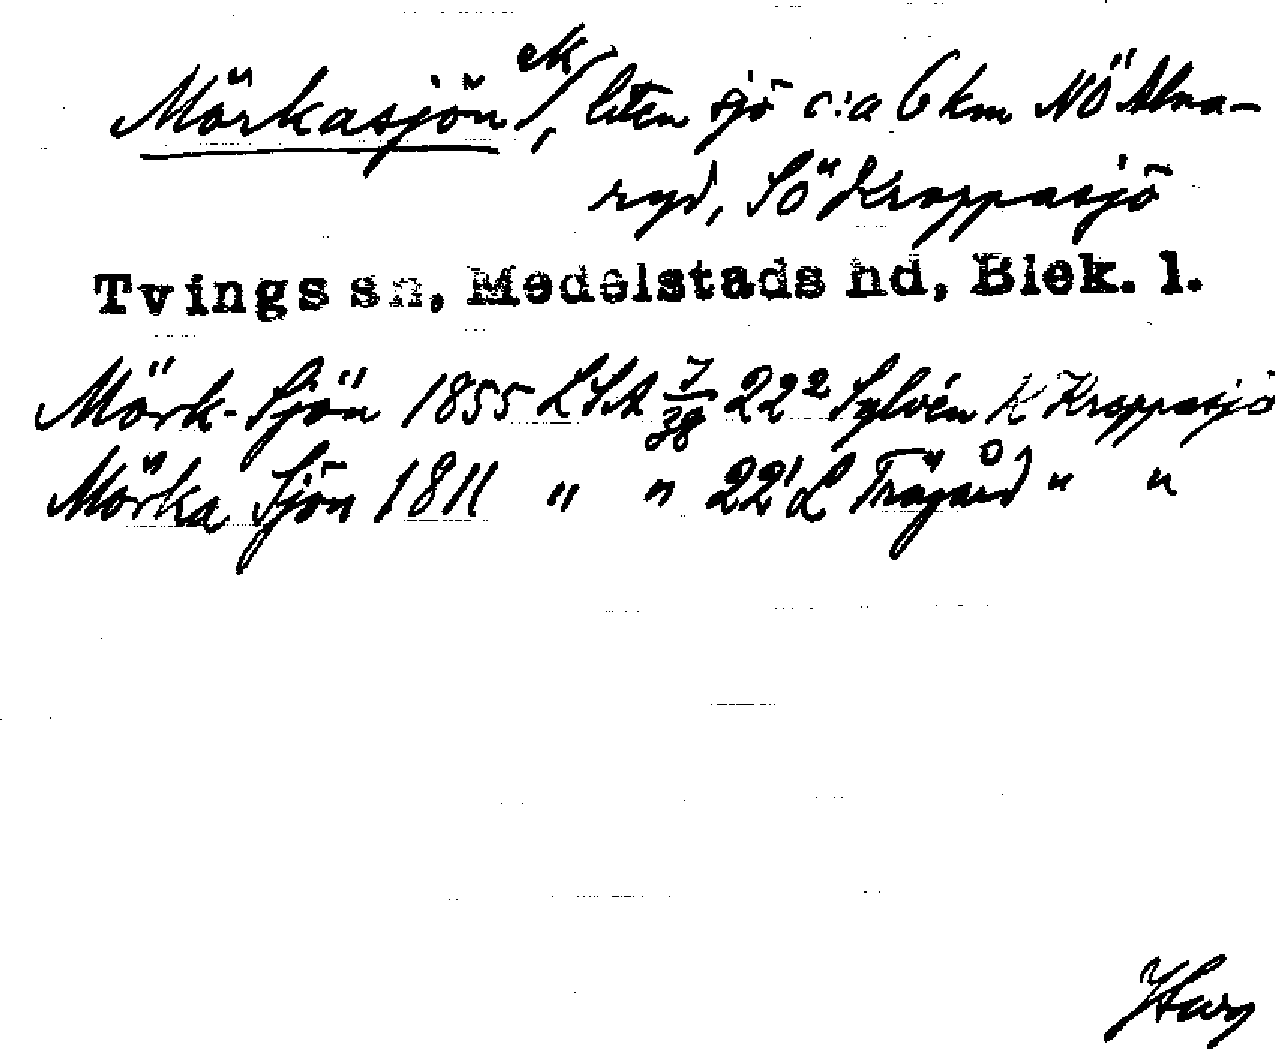 Mörkasjön ek/, liten sjö c:a 6 km NÖ Alna-
ryd, SÖ Kroppasjö
Tvings sn, Medelstads hd, Blek. l.
Mörk-Sjön 1855 LSA 7/38 22² Sylvén K Kroppasjö
Mörka Sjön 1811 " " 22¹ L Trägård " "